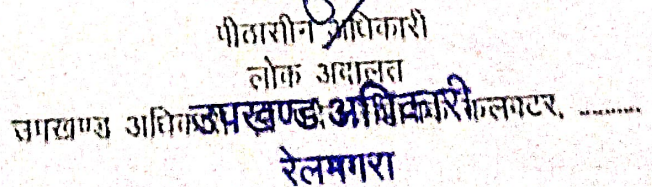 पीठासीन अधिकारी
लोक अदालत
उपखण्ड अधिकारी उपखण्ड अधिकारी कलक्टर, ..........
रेलमगरा